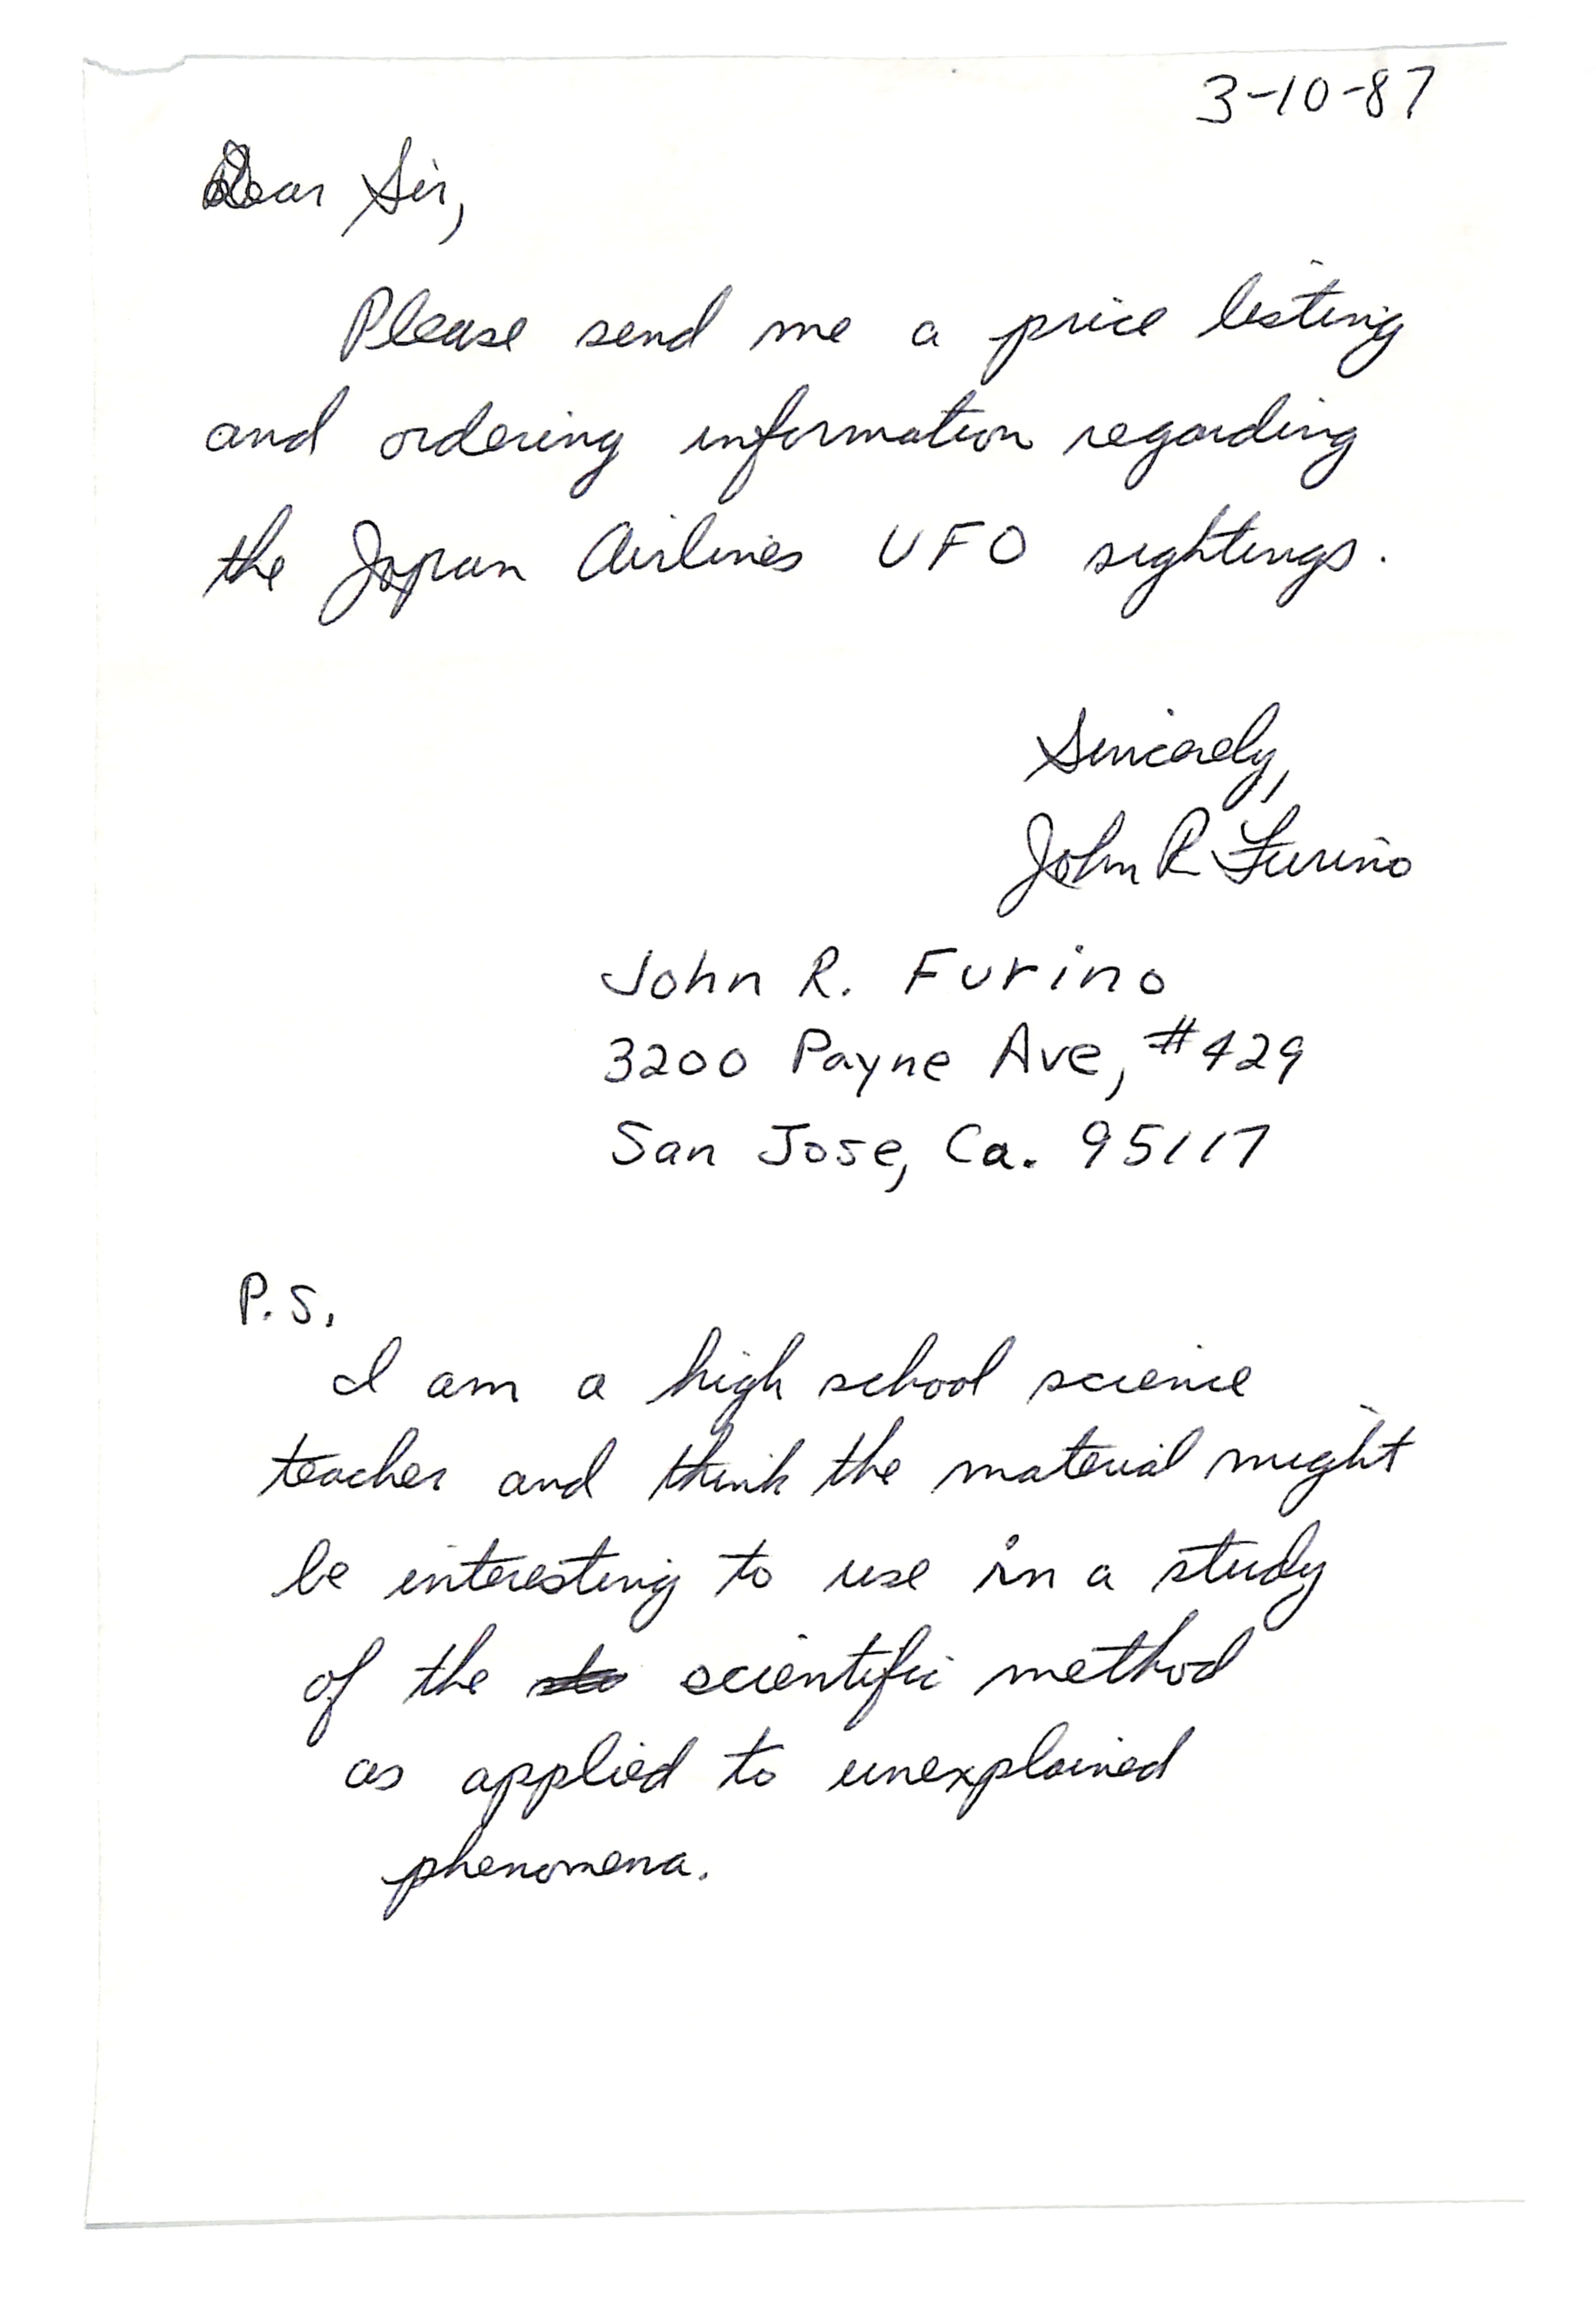 3-10-87
Dear Sir,
Please send me a price listing
and ordering information regarding
the Japan Airlines UFO sightings.
Sincerely,
John R Furino
John R. Furino
3200 Payne Ave, #429
San Jose, Ca. 95117
P.S.
I am a high school science
teacher and think the material might
be interesting to use in a study
of the scientific method
as applied to unexplained
phenomena.